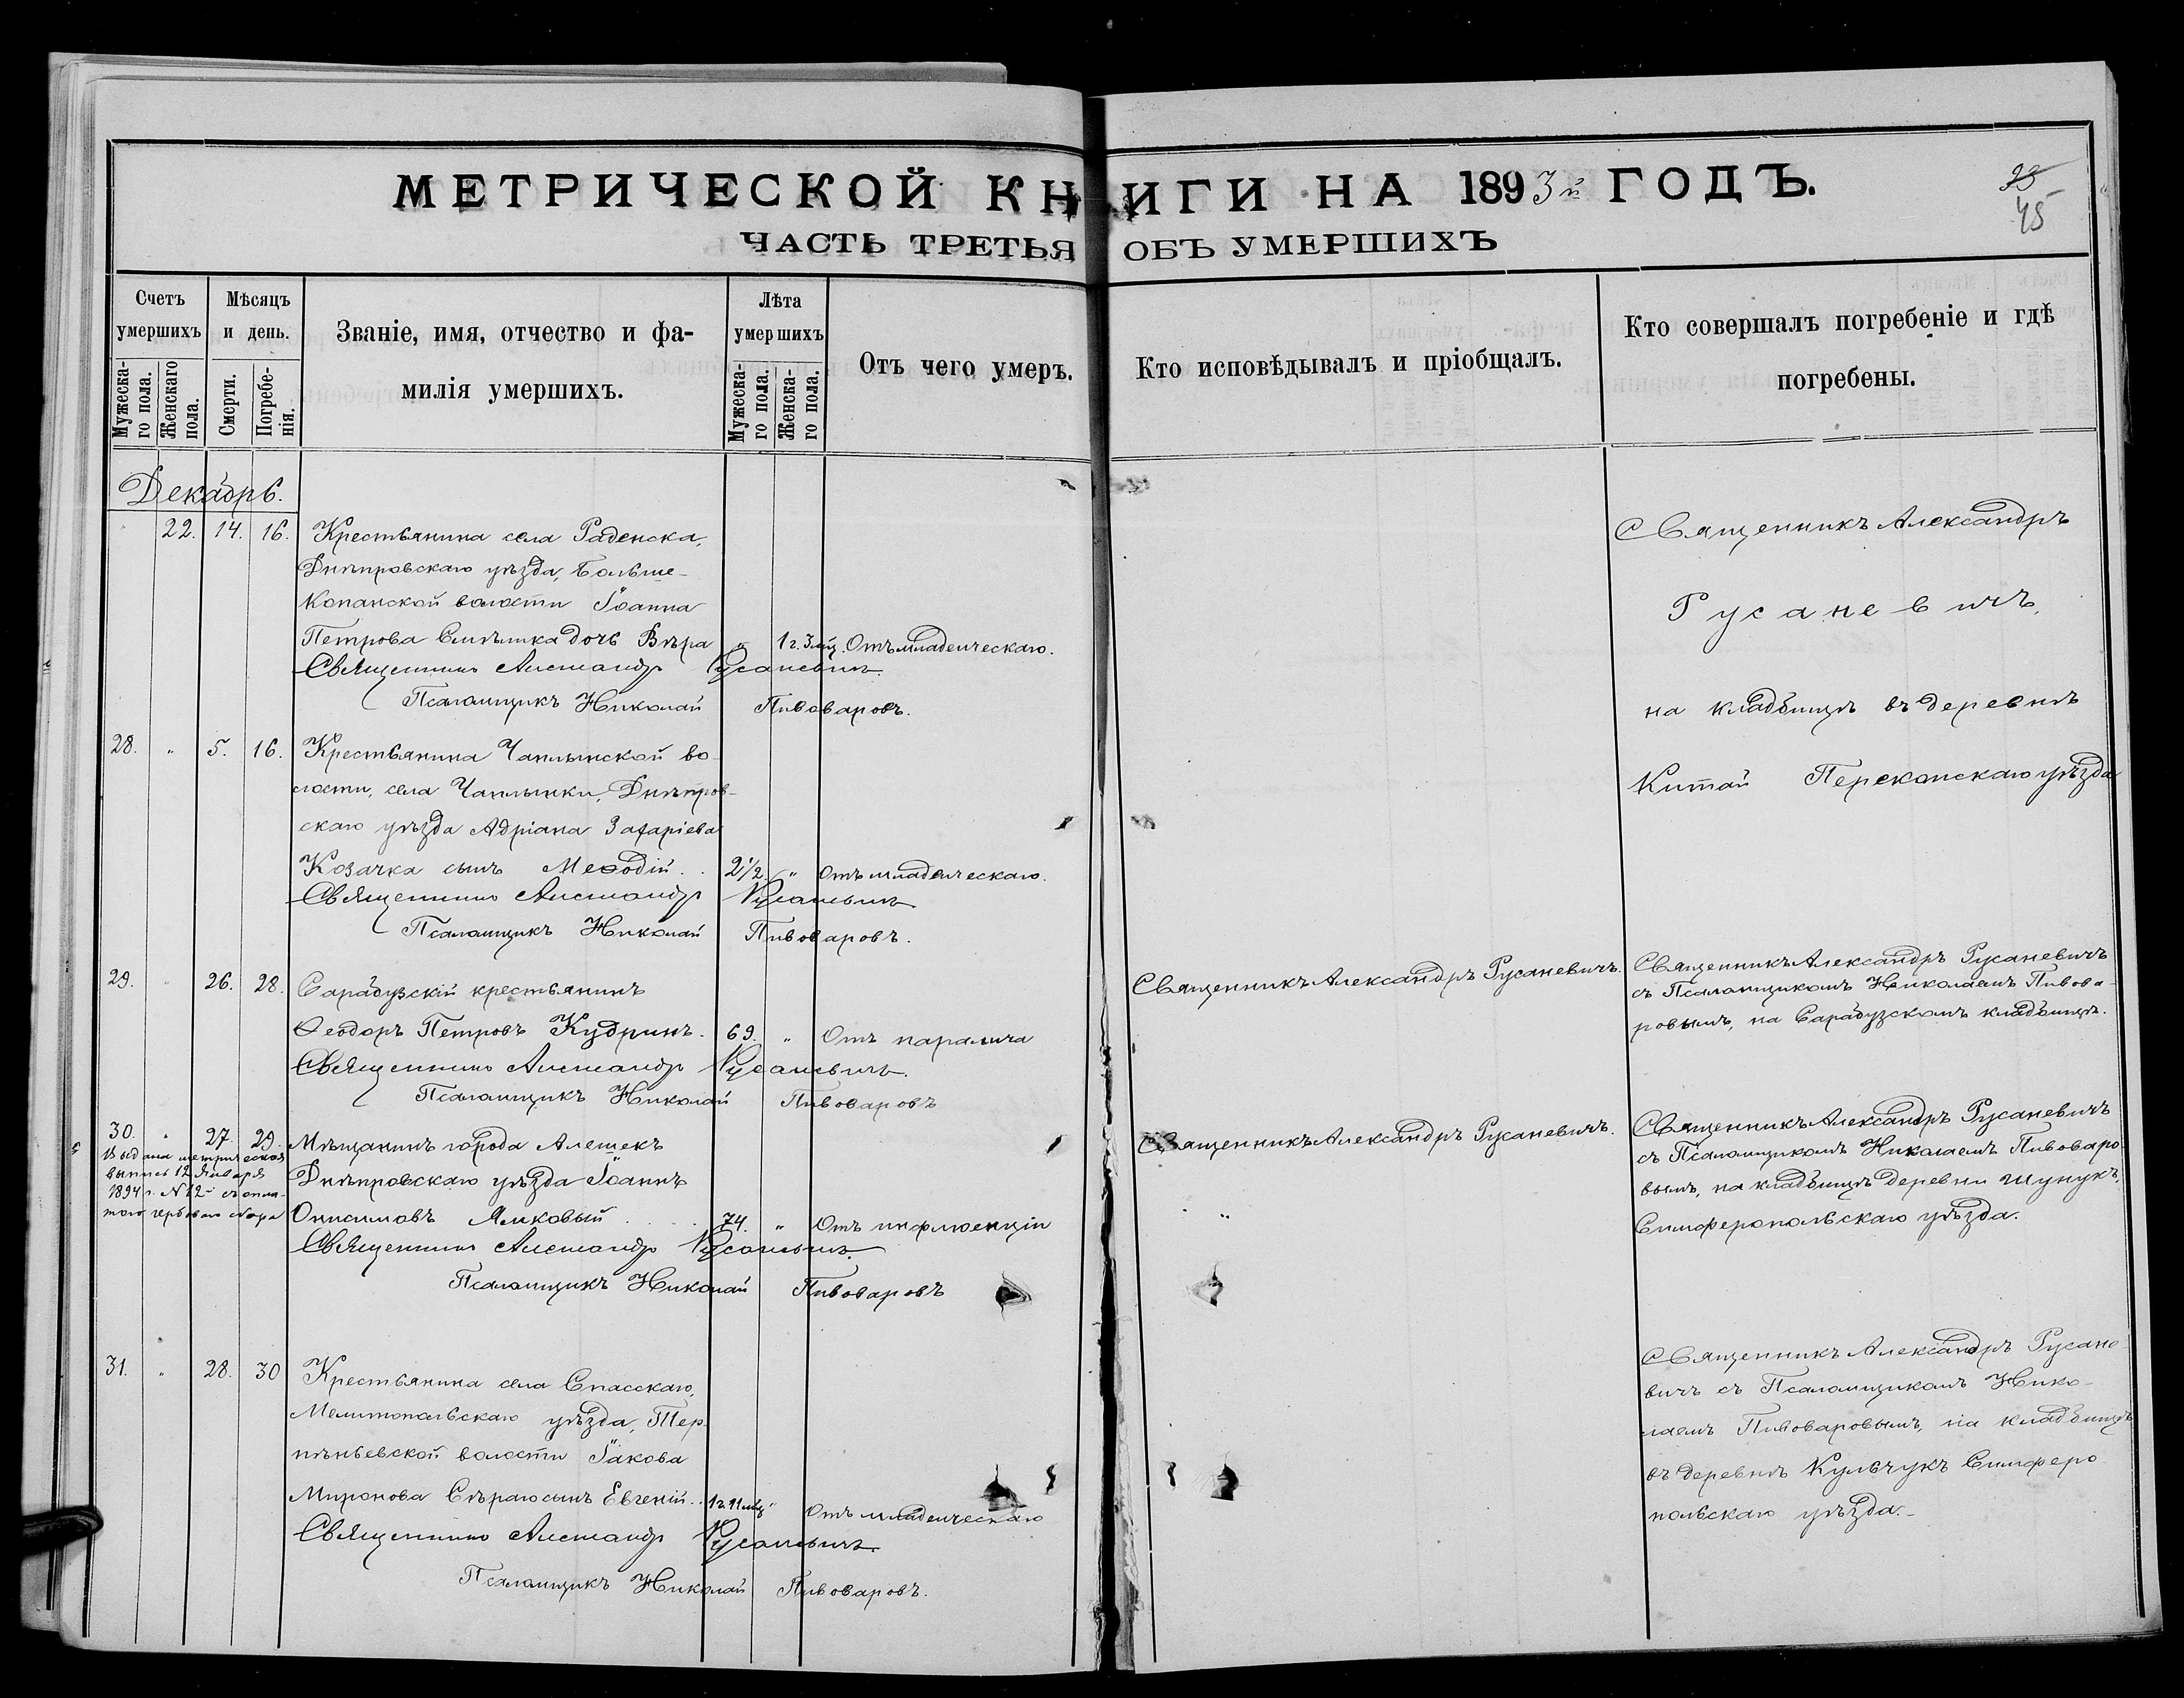 МЕТРИЧЕСКОЙ КНИГИ НА 1893й ГОДЪ.
ЧАСТЬ ТРЕТЬЯ ОБЪ УМЕРШИХЪ
45
Счетъ умершихъ
Мужеска-го пола.
Женскаго пола.
Мѣсяцъ и день.
Смерти.
Погребе-нія.
Званіе, имя, отчество и фа-
милія умершихъ.
Лѣта умершихъ
Мужеска-го пола.
Женска-го пола.
Отъ чего умеръ.
Кто исповѣдывалъ и пріобщалъ.
Кто совершалъ погребеніе и гдѣ
погребены.
Декабрь.
22. 14. 16. Крестьянина села Раденска,
Днѣпровскаго уѣзда, Больше-
Копанской волости Іоанна
Петрова дочь Вѣра " 1 г. 3 мѣс. Отъ младенческаго.
Священникъ Александръ Русаневичъ.
Псаломщикъ Николай Пивоваровъ.
Священникъ Александръ
Русаневичъ,
на кладбищѣ въ деревнѣ
Китай Перекопскаго уѣзда
28. " 5. 16. Крестьянина Чаплынской во-
лости, села Чаплынки, Днѣпров-
скаго уѣзда Адріана Захаріева
Козачка сынъ Меѳодій. 2 1/2. " Отъ младенческаго.
Священникъ Александръ Русаневичъ
Псаломщикъ Николай Пивоваровъ.
29. " 26. 28. Сарабузскій крестьянинъ
Ѳеодоръ Петровъ Кудринъ. 69. " Отъ паралича
Священникъ Александръ Русаневичъ.
Псаломщикъ Николай Пивоваровъ
Священникъ Александръ Русаневичъ.
Священникъ Александръ Русаневичъ
съ Псаломщикомъ Николаемъ Пивова-
ровымъ, на Сарабузскомъ кладбищѣ.
30. " 27. 29. Мѣщанинъ города Алешекъ
Днѣпровскаго уѣзда Іоаннъ
Онисимовъ Яиковый 74. " Отъ инфлюенціи
Священникъ Александръ Русаневичъ.
Псаломщикъ Николай Пивоваровъ
Выдана метрическая
выпись 12 Января
1894 г. № 12 съ опла-
тою гербоваго сбора
Священникъ Александръ Русаневичъ.
Священникъ Александръ Русаневичъ
съ Псаломщикомъ Николаемъ Пивоваро-
вымъ, на кладбищѣ деревни Шунукъ,
Симферопольскаго уѣзда.
31. " 28. 30 Крестьянина села Спасскаго,
Мелитопольскаго уѣзда, Тер-
пѣньевской волости Іакова
Миронова Сѣраго сынъ Евгеній. 1 г. 11 мѣс. " Отъ младенческаго
Священникъ Александръ Русаневичъ.
Псаломщикъ Николай Пивоваровъ.
Священникъ Александръ Русане-
вичъ съ Псаломщикомъ Нико-
лаемъ Пивоваровымъ, на кладбищѣ
въ деревнѣ Кульчукъ Симферо-
польскаго уѣзда.